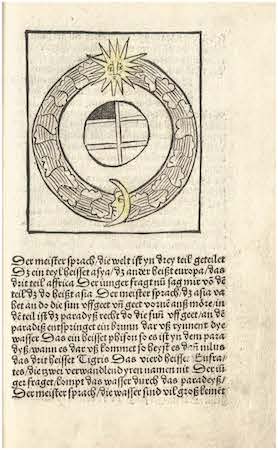 Der meister sprach/die welt ist yn drey teil geteilet
Dz ein teyl heisset asya/dz ander heißt europa/das
drit teil affrica Der iunger fragt nū sag mir vō dē
teil dz do heißt asia Der meister sprach/dz asia va
het an do die sun vff geet vnd geet vorne auß möre/in
dē teil ist dz paradyß recht do die sun vff geet/an dē
paradiß entspringet ein brunn dar vß rynnent dye
wasser Das ein heisset phison so es ist yn dem para
dyß/wann es dar vß kommet so heyst es dā nilus
das drit heisset Tigris Das vierd heisse: Eufra-
tes/die tzwei verwandlend yren namen nit Der iū
ger fraget/kompt das wasser durch das paradeyß/
Der meister sprach/die wasser sind vil groß